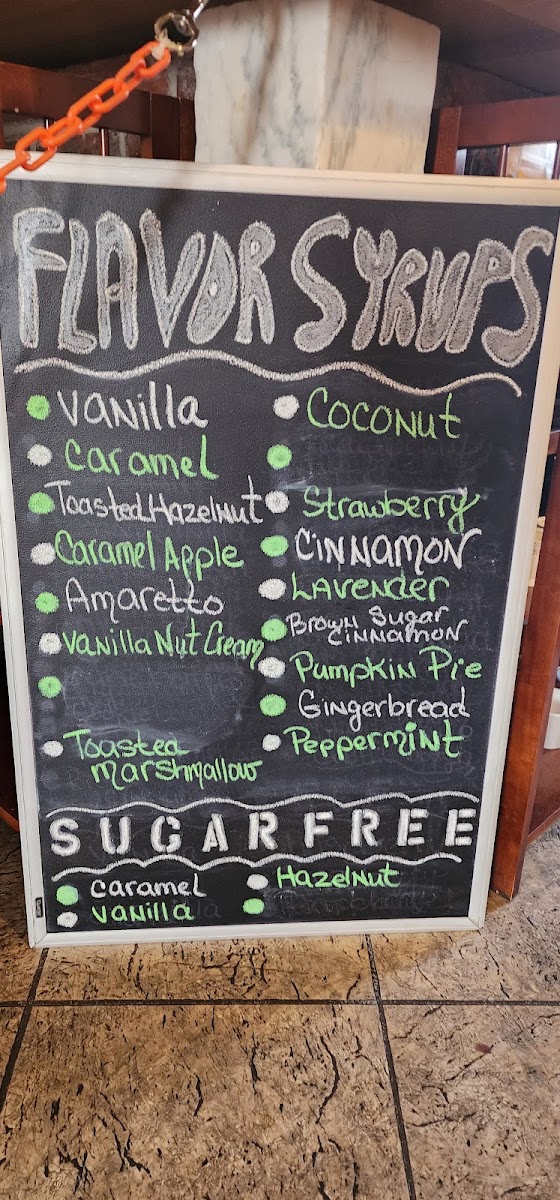 FLAVOR SYRUPS
Vanilla
Caramel
Toasted Hazelnut
Caramel Apple
Amaretto
Vanilla Nut Cream
Toasted
Marshmallow
Coconut
Strawberry
Cinnamon
Lavender
Brown Sugar
Cinnamon
Pumpkin Pie
Gingerbread
Peppermint
SUGAR FREE
Caramel
Vanilla
Hazelnut